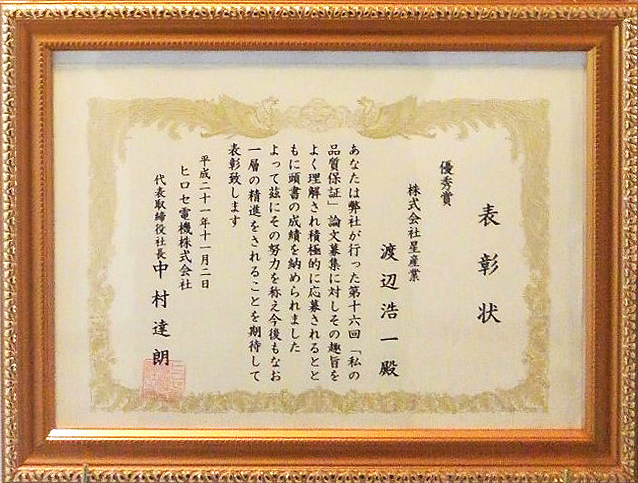 表彰状
優秀賞
株式会社星産業
渡辺浩一殿
あなたは弊社が行った第十六回「私の
品質保証」論文募集に対しその趣旨を
よく理解され積極的に応募されるとと
もに頭書の成績を納められました
よって茲にその努力を称え今後もなお
一層の精進をされることを期待して
表彰致します
平成二十一年十一月二日
ヒロセ電機株式会社
代表取締役社長 中村達朗